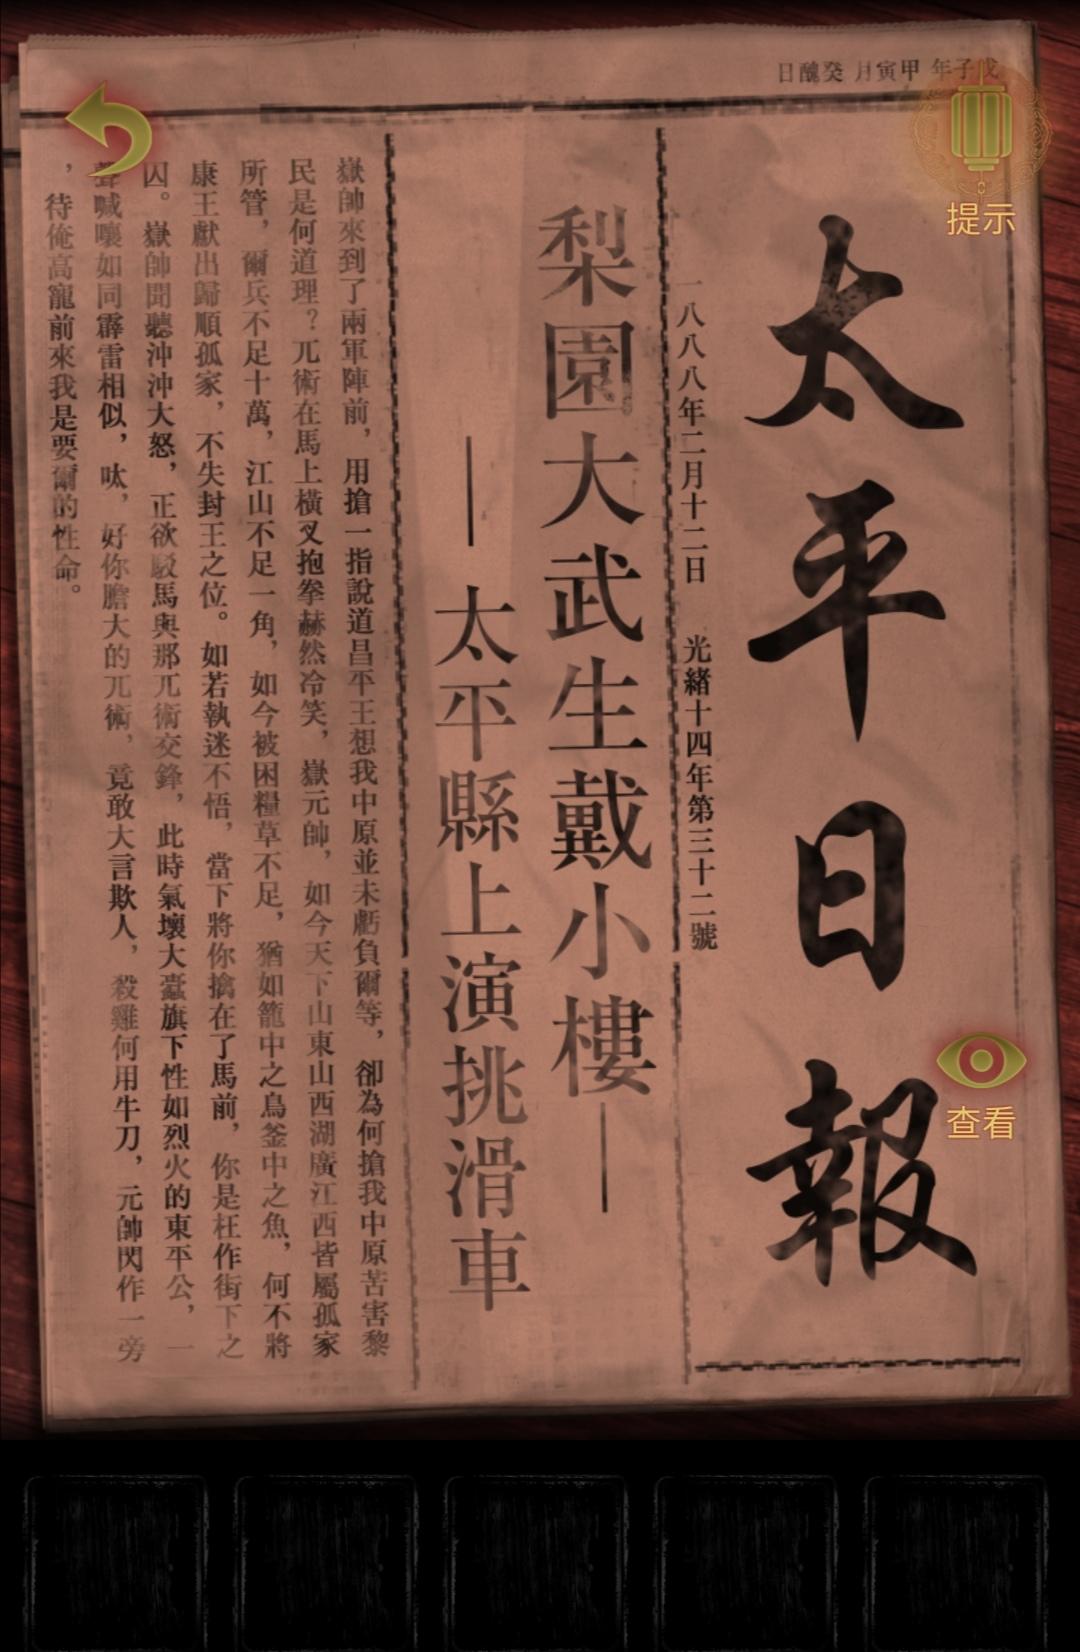 戊子年 甲寅月 癸醜日
太平日報
一八八八年二月十二日 光緒十四年第三十二號
梨園大武生戴小樓——
——太平縣上演挑滑車
嶽帥來到了兩軍陣前，用搶一指說道昌平王想我中原並未虧負爾等，卻為何搶我中原苦害黎
民是何道理？兀術在馬上橫叉抱拳赫然冷笑，嶽元帥，如今天下山東山西湖廣江西皆屬孤家
所管，爾兵不足十萬，江山不足一角，如今被困糧草不足，猶如籠中之鳥釜中之魚，何不將
康王獻出歸順孤家，不失封王之位。如若執迷不悟，當下將你擒在了馬前，你是枉作街下之
囚。嶽帥聞聽沖沖大怒，正欲駁馬與那兀術交鋒，此時氣壞大纛旗下性如烈火的東平公，一
聲喊嚷如同霹雷相似，呔，好你膽大的兀術，竟敢大言欺人，殺雞何用牛刀，元帥閃作一旁
，待俺高寵前來我是要爾的性命。
提示
查看